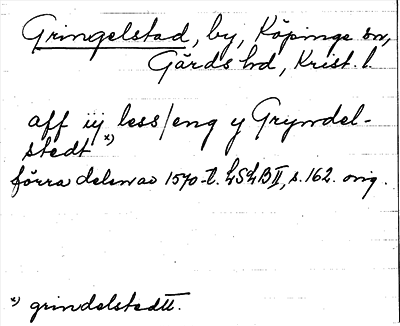 Gringelstad, by, Köpinge sn,
Gärds hd, Krist. l.
aff iij less/eng y Gryndel-
stedt x)
förra delen av 1570-t. LSLB II, s. 162. orig.
x) grindelstedtt.